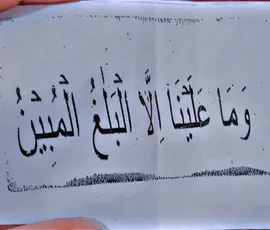 وَمَا عَلَيْنَا اِلَّا الْبَلٰغُ الْمُبِيْنُ